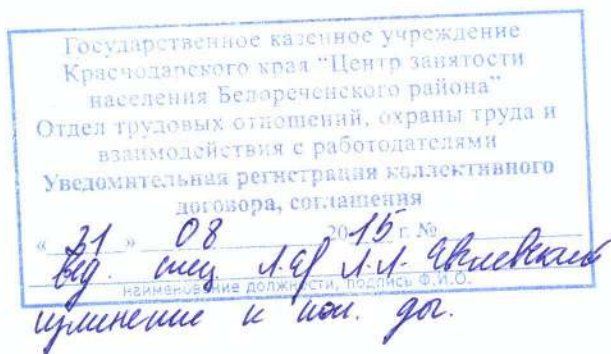 Государственное казенное учреждение
Краснодарского края "Центр занятости
населения Белореченского района"
Отдел трудовых отношений, охраны труда и
взаимодействия с работодателями
Уведомительная регистрация коллективного
договора, соглашения
« 31 » 08 2015 г. №
вед. спец Л.Л.
наименование должности, подпись Ф.И.О.
изменение к кол. дог.